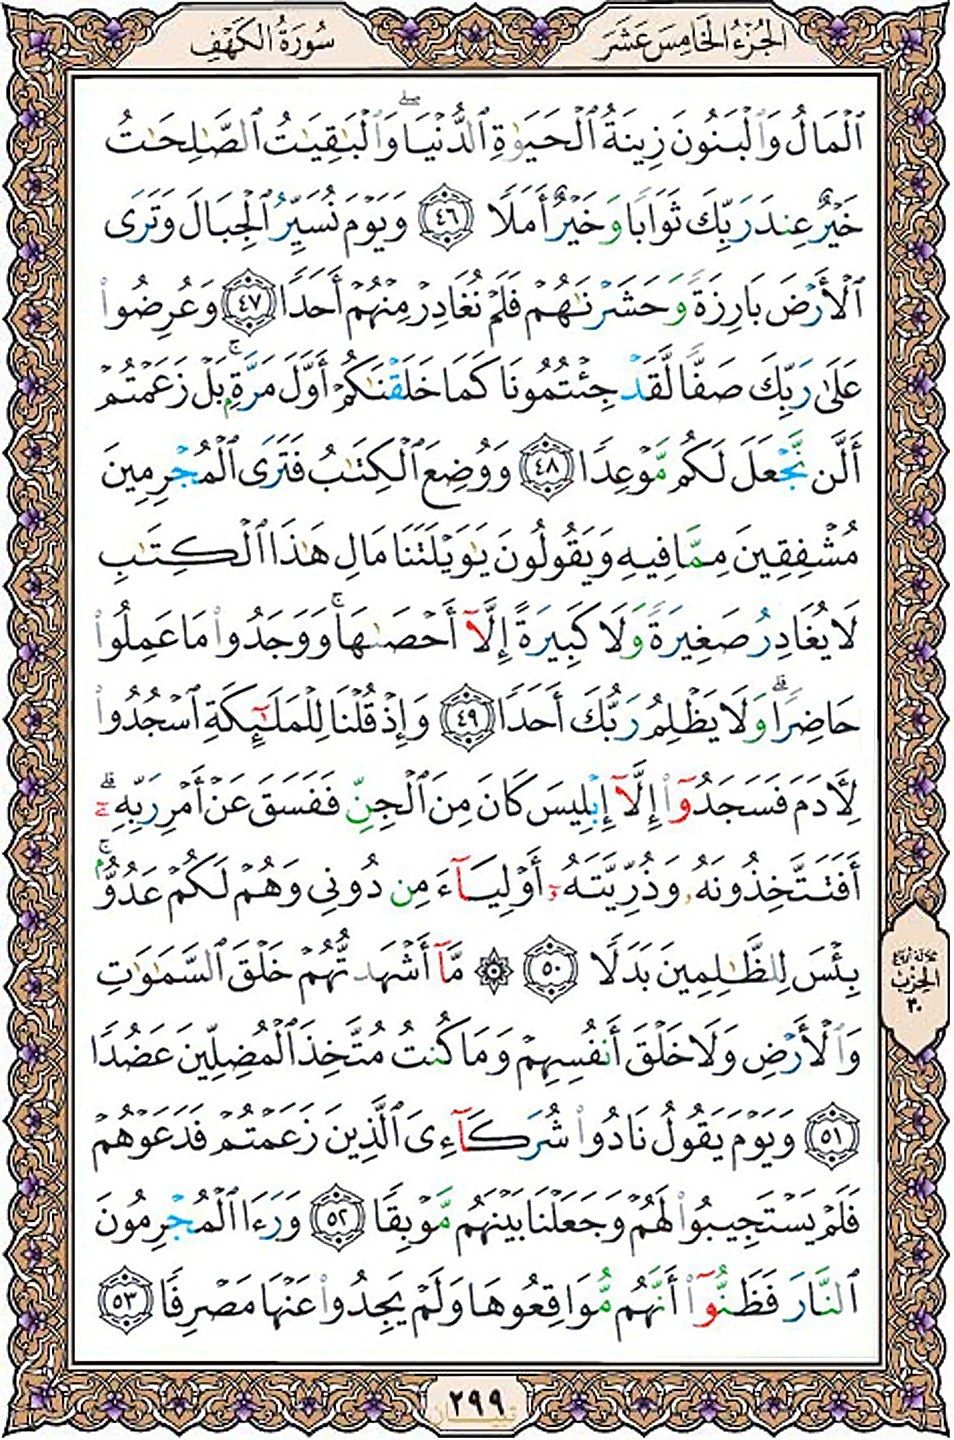 الجُزْءُ الخَامِسَ عَشَرَ
سُورَةُ الكَهْفِ
ٱلْمَالُ وَٱلْبَنُونَ زِينَةُ ٱلْحَيَوٰةِ ٱلدُّنْيَا ۖ وَٱلْبَٰقِيَٰتُ ٱلصَّٰلِحَٰتُ
خَيْرٌ عِندَ رَبِّكَ ثَوَابًا وَخَيْرٌ أَمَلًا ٤٦ وَيَوْمَ نُسَيِّرُ ٱلْجِبَالَ وَتَرَى
ٱلْأَرْضَ بَارِزَةً وَحَشَرْنَٰهُمْ فَلَمْ نُغَادِرْ مِنْهُمْ أَحَدًا ٤٧ وَعُرِضُوا۟
عَلَىٰ رَبِّكَ صَفًّا لَّقَدْ جِئْتُمُونَا كَمَا خَلَقْنَٰكُمْ أَوَّلَ مَرَّةٍۭ ۚ بَلْ زَعَمْتُمْ
أَلَّن نَّجْعَلَ لَكُم مَّوْعِدًا ٤٨ وَوُضِعَ ٱلْكِتَٰبُ فَتَرَى ٱلْمُجْرِمِينَ
مُشْفِقِينَ مِمَّا فِيهِ وَيَقُولُونَ يَٰوَيْلَتَنَا مَالِ هَٰذَا ٱلْكِتَٰبِ
لَا يُغَادِرُ صَغِيرَةً وَلَا كَبِيرَةً إِلَّآ أَحْصَىٰهَا ۚ وَوَجَدُوا۟ مَا عَمِلُوا۟
حَاضِرًا ۗ وَلَا يَظْلِمُ رَبُّكَ أَحَدًا ٤٩ وَإِذْ قُلْنَا لِلْمَلَٰٓئِكَةِ ٱسْجُدُوا۟
لِأَدَمَ فَسَجَدُوٓا۟ إِلَّآ إِبْلِيسَ كَانَ مِنَ ٱلْجِنِّ فَفَسَقَ عَنْ أَمْرِ رَبِّهِۦٓ ۗ
أَفَتَتَّخِذُونَهُۥ وَذُرِّيَّتَهُۥٓ أَوْلِيَآءَ مِن دُونِى وَهُمْ لَكُمْ عَدُوٌّۢ ۚ
بِئْسَ لِلظَّٰلِمِينَ بَدَلًا ٥٠ ۞ مَّآ أَشْهَدتُّهُمْ خَلْقَ ٱلسَّمَٰوَٰتِ
وَٱلْأَرْضِ وَلَا خَلْقَ أَنفُسِهِمْ وَمَا كُنتُ مُتَّخِذَ ٱلْمُضِلِّينَ عَضُدًا
٥١ وَيَوْمَ يَقُولُ نَادُوا۟ شُرَكَآءِىَ ٱلَّذِينَ زَعَمْتُمْ فَدَعَوْهُمْ
فَلَمْ يَسْتَجِيبُوا۟ لَهُمْ وَجَعَلْنَا بَيْنَهُم مَّوْبِقًا ٥٢ وَرَءَا ٱلْمُجْرِمُونَ
ٱلنَّارَ فَظَنُّوٓا۟ أَنَّهُم مُّوَاقِعُوهَا وَلَمْ يَجِدُوا۟ عَنْهَا مَصْرِفًا ٥٣
ثلاثة أرباع
الحزب
٣٠
٢٩٩
تبيان